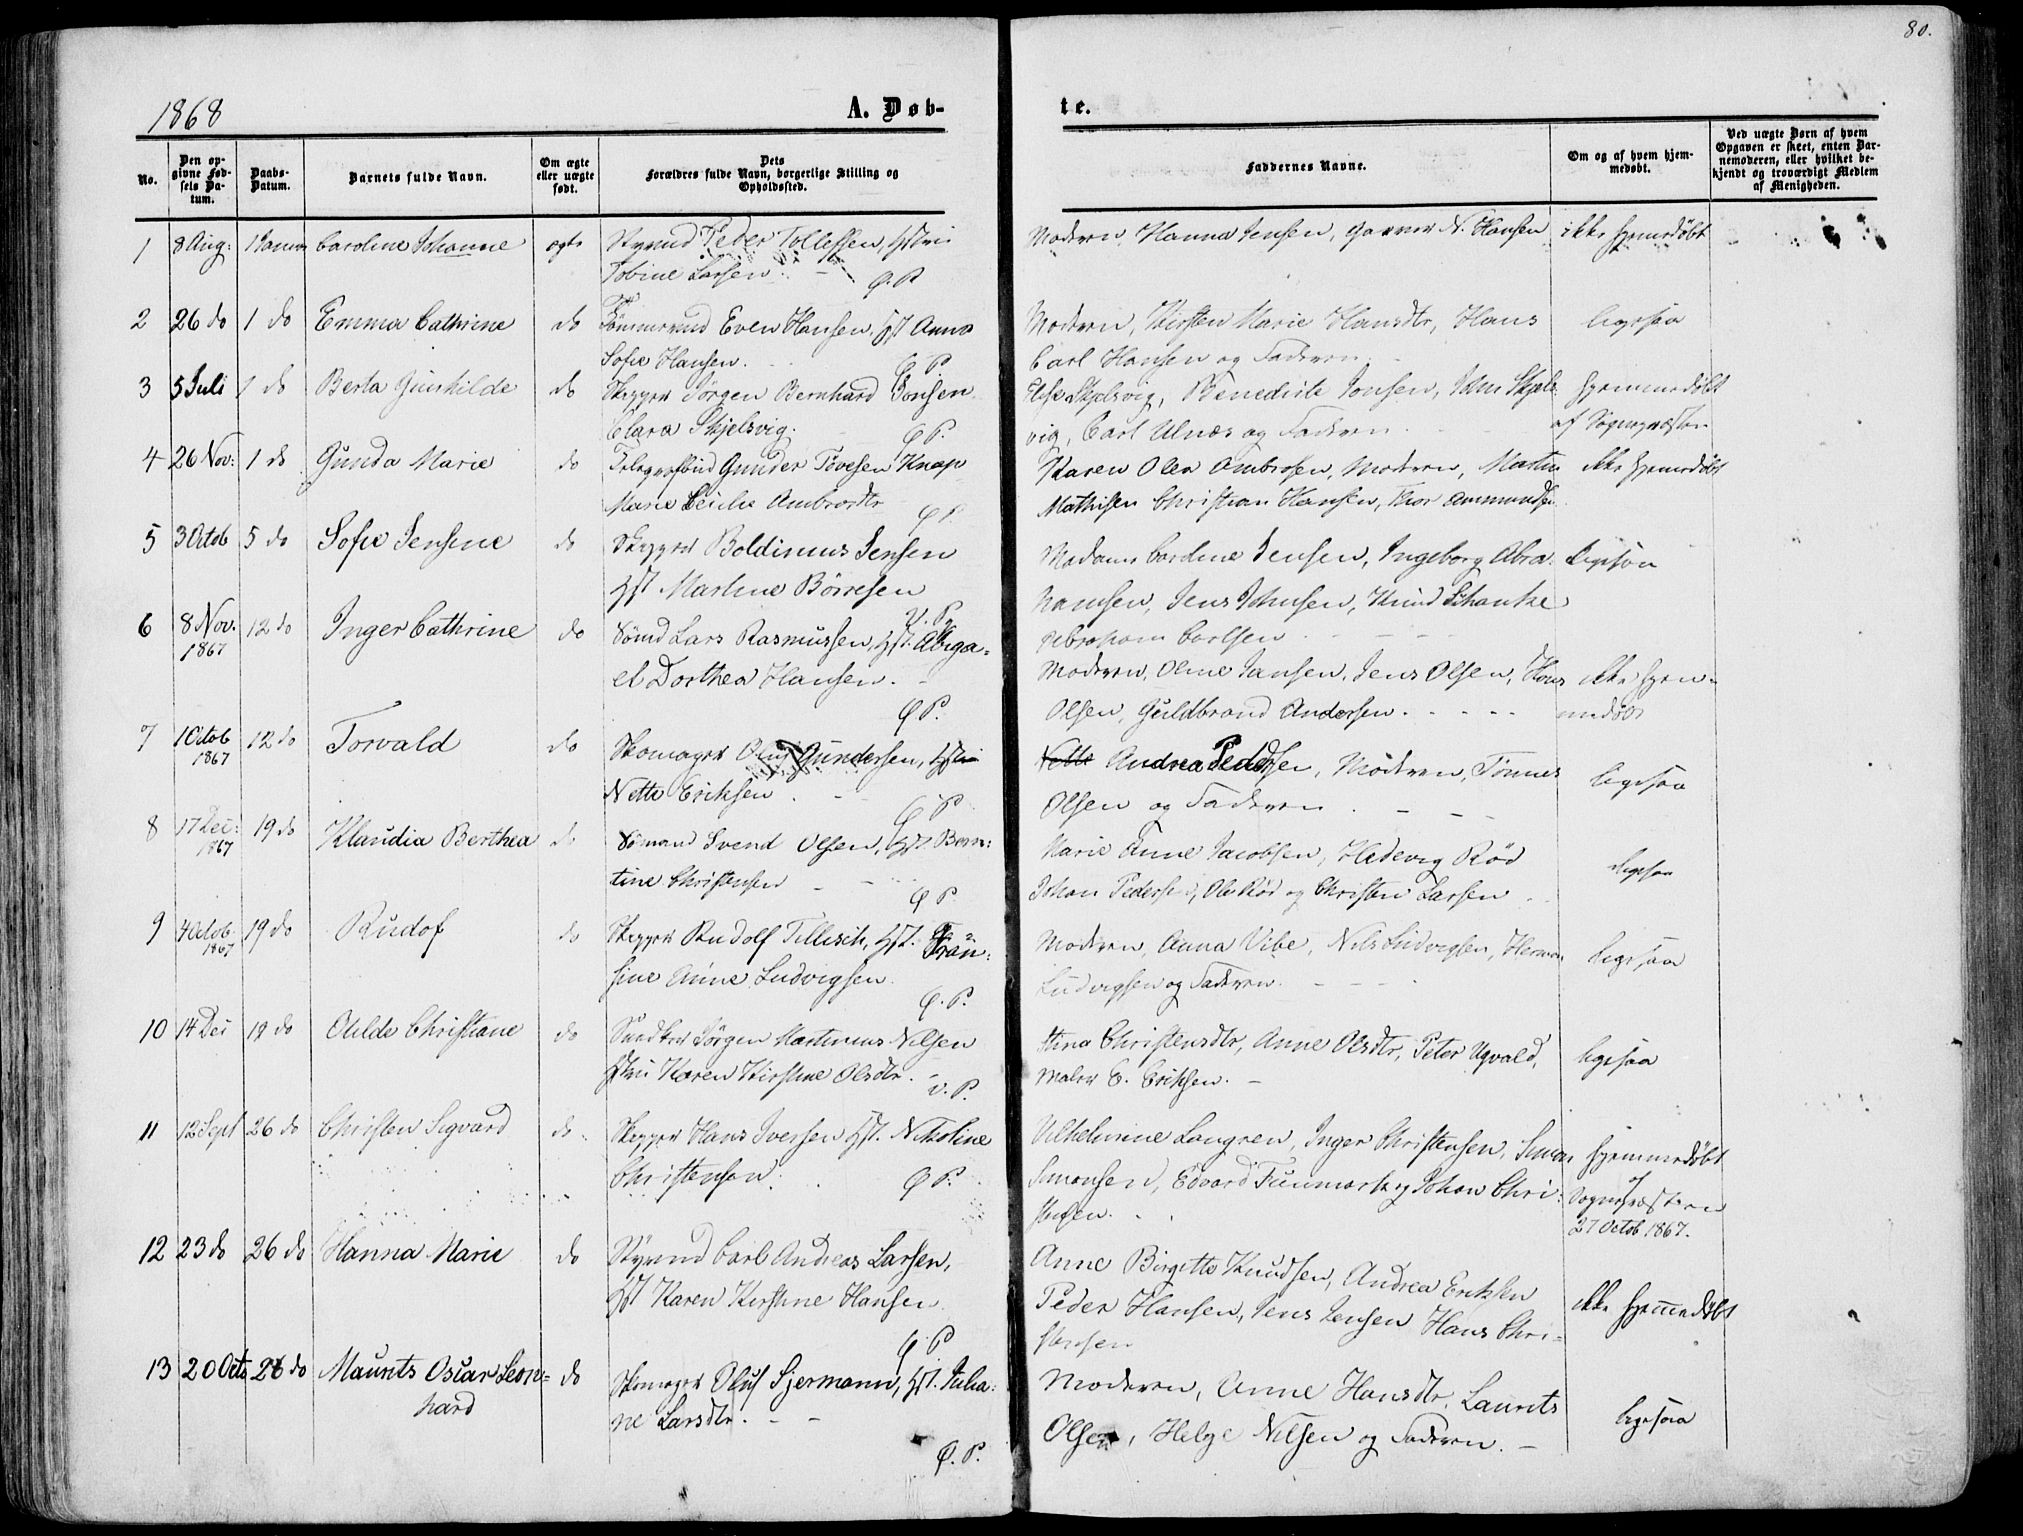 80.
1868
A. Døb-
te.
No.
Den op-
givne Fød-
sels Da-
tum.
Daabs-
Datum.
Barnets fulde Navn.
Om ægte
eller uægte
født.
Dets
Forældres fulde Navn, borgerlige Stilling og
Opholdssted.
Faddernes Navne.
Om og af hvem hjem-
medøbt.
Ved uægte Børn af hvem
Opgaven er skeet, enten Bar-
nemoderen, eller hvilket be-
kjendt og troværdigt Medlem
af Menigheden.
1 8 Aug: 1 Janua Caroline Johanne ægte Styrmd Peder Tollefsen, Hstrii
Tobine Larsen. Ø. P.
Moderen, Hanna Jensen, N. Hansen ikke hjemedøbt
2 26 do 1 do Emma Cathrine do Tømmermd Even Hansen, Hst Anna
Sofie Hansen. Ø P.
Moderen, Kirsten Marie Hansdtr, Hans
Carl Hansen og Faderen
ligesaa
3 5 Juli 1 do Berta Gunhilde do Skipper Jørgen Bernhard Jonsen
Clara Skjelsvig. Ø P.
Else Skjelsvig, Benedicte Jonsen, John Skjels
vig, Carl Ulnæs og Faderen.
hjemmedøbt
af Sognepræsten
4 26 Nov: 1 do Gunda Marie do Gunder Tovesen Knap
Marie Cecilie Ambrosdtr Ø P.
Karen Olea Ambrosen, Moderen, Martin
Mathisen Christian Hansen, Thor Ammundsen
ikke hjemmedøbt
5 3 Octob 5 do Sofie Jensine do Skipper Boldinius Jensen
Hst. Martine Børresen V. P.
Madam Cardine Jensen, Ingeborg Abra-
hamsen, Jens Johnsen, Knud Schanke
Abraham Carlsen
ligesaa
6 8 Nov. 1867 12 do Inger Cathrine do Sømd Lars Rasmussen, Hst. Abiga=
el Dorthea Hansen. Ø P.
Moderen, Oline Jansen, Jens Olsen, Hans
Olsen, Guldbrand Andersen.
ikke hjem=
medøbt
7 1 Octob 1867 12 do Torvald do Skomager Oluf Gundersen, Hstrii
Nette Eriksen. Ø P.
Nette Andrea Pedersen, Moderen, Tønnes
Olsen og Faderen
ligesaa
8 17 Dec: 1867 19 do Klaudia Berthea do Sømand Svend Olsen, Hst. Bern:
tine Christensen Ø P.
Marie Anne Jacobsen, Hedevig Rød
Johan Pedersen, Ole Rød og Christen Larsen
ligesaa
9 4 Octob. 1867 19 do Rudof do Skipper Rudolf Tillisch, Hst. Fran:
sine Anine Ludvigsen. Ø. P.
Moderen, Anna Vibe, Nils Ludvigsen, Herman
Ludvigsen og Faderen.
ligesaa
10 14 Dec 19 do Otilde Christiane do Snedker Jørgen Martinius Nilsen
Hstrii Karen Kirstine Olsdtr. V. P.
Stina Christensdtr, Anne Olsdtr, Peter Ugvald,
Maler E. Eriksen.
ligesaa
11 12 Sept 26 do Christen Sigvard do. Skipper Hans Iversen Hst. Nikoline
Christensen. Ø P.
Vilhelmine Langren, Inger Christensen, Simon
Simonsen, Edvard Funmark og Johan Chri-
stensen.
hjemmedøbt
af
Sognepræsten
27 Octob 1867.
12 23 do 26 do Hanna Marie do Styrmd Carl Andreas Larsen,
Hst Karen Kirstine Hansen. Ø P
Anne Birgitte Knudsen, Andrea Eriksen
Peder Hansen, Jens Jensen Hans Chri-
stensen
ikke hjemmedøbt
13 20 Octo 26 do Maurits Oscar Leon=
hard do Skomager Oluf Sjermann, Hst. Julia:
ne Larsdtr. Ø. P.
Moderen, Anne Hansdtr, Laurits
Olsen, Helge Nilsen og Faderen.
ligesaa